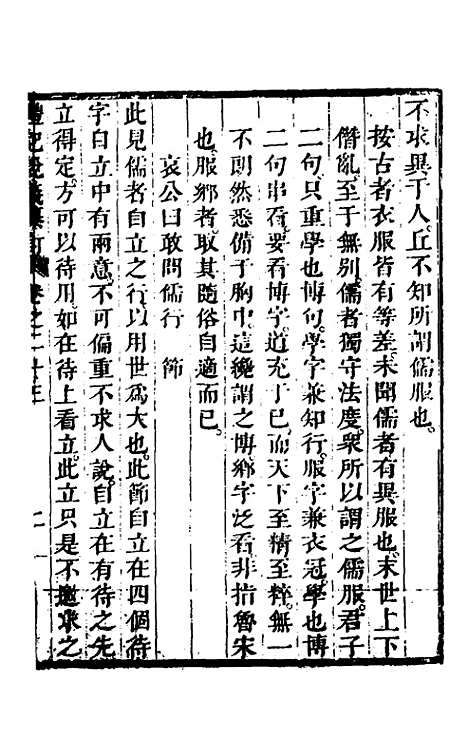 不求異于人丘不知所謂儒服也
按古者衣服皆有等差未聞儒者有異服也末世上下
僭亂至于無別儒者獨守法度衆所以謂之儒服君子
二句只重學也博句學字兼知行服字兼衣冠學也博
二句串看要看博字道充于已而天下至精至粹無一
不朗然悉備于胸中這纔謂之博鄉字泛看非指魯宋
也服鄉者取其隨俗自適而已
哀公曰敢問儒行　節
此見儒者自立之行以用世爲大也此節自立在四個待
字曰立中有兩意不可偏重不求人說自立在有待之先
立得定方可以待用如在待上看立此立只是不邀求之
禮記說義纂訂　卷之二十三　二